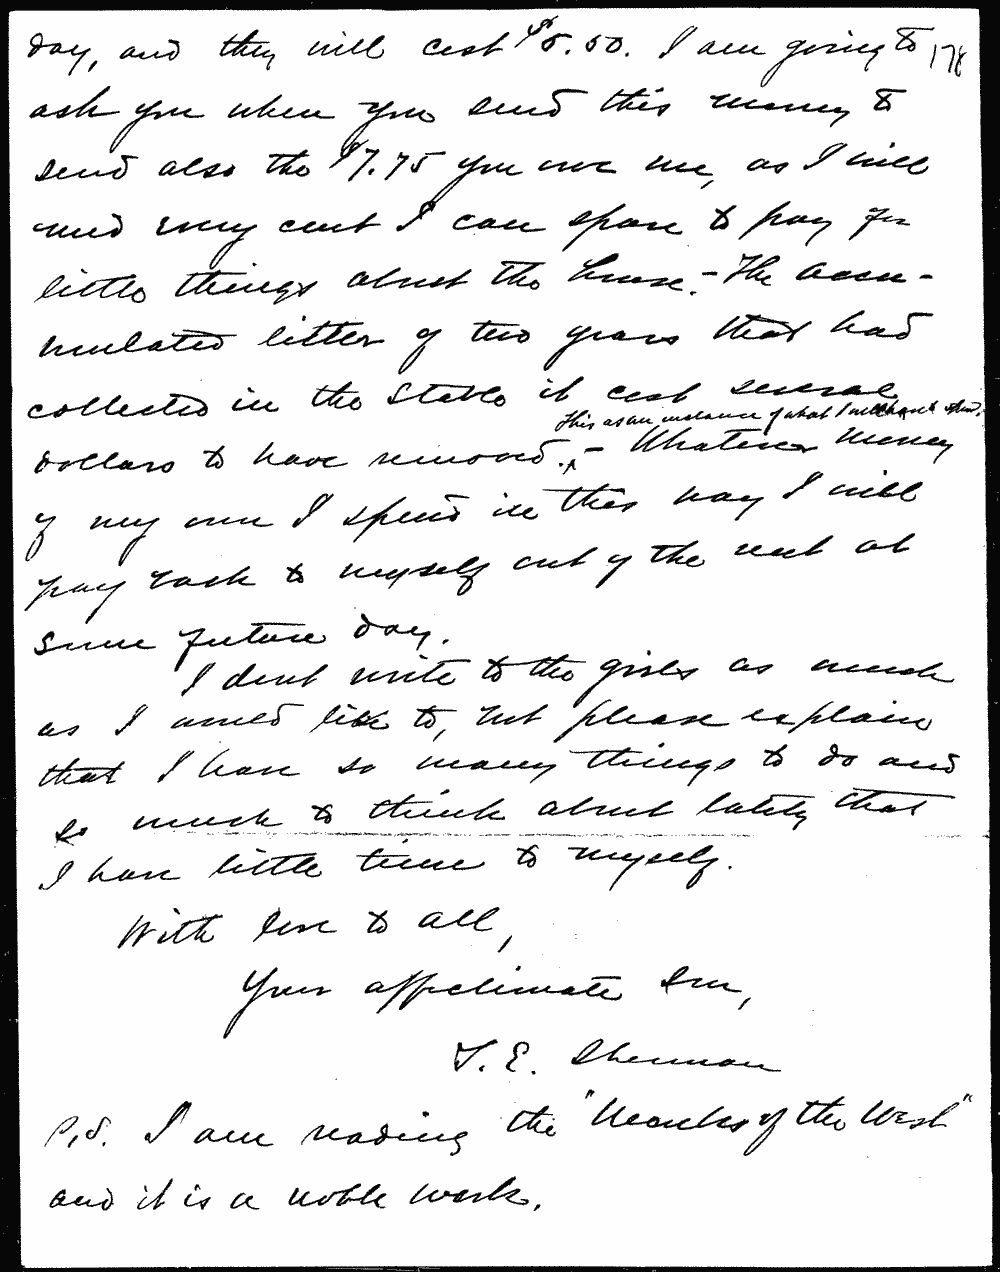 day, and they will cost $5.50. I am going to 178
ask you when you send this money to
send also the $7.75 you owe me, as I will
need every cent I can spare to pay for
little things about the house. - The accu-
mulated litter of two years that had
collected in the stable it cost several
This as an instance of what I will have to spend.
dollars to have removed. - Whatever money
of my own I spend in this way I will
pay back to myself out of the rent at
some future day.
I dont write to the girls as much
as I would like to, but please explain
that I have so many things to do and
so much to think about lately that
I have little time to myself.
With love to all,
Your affectionate Son,
T. E. Sherman
P.S. I am reading the "Monks of the West"
and it is a noble work.